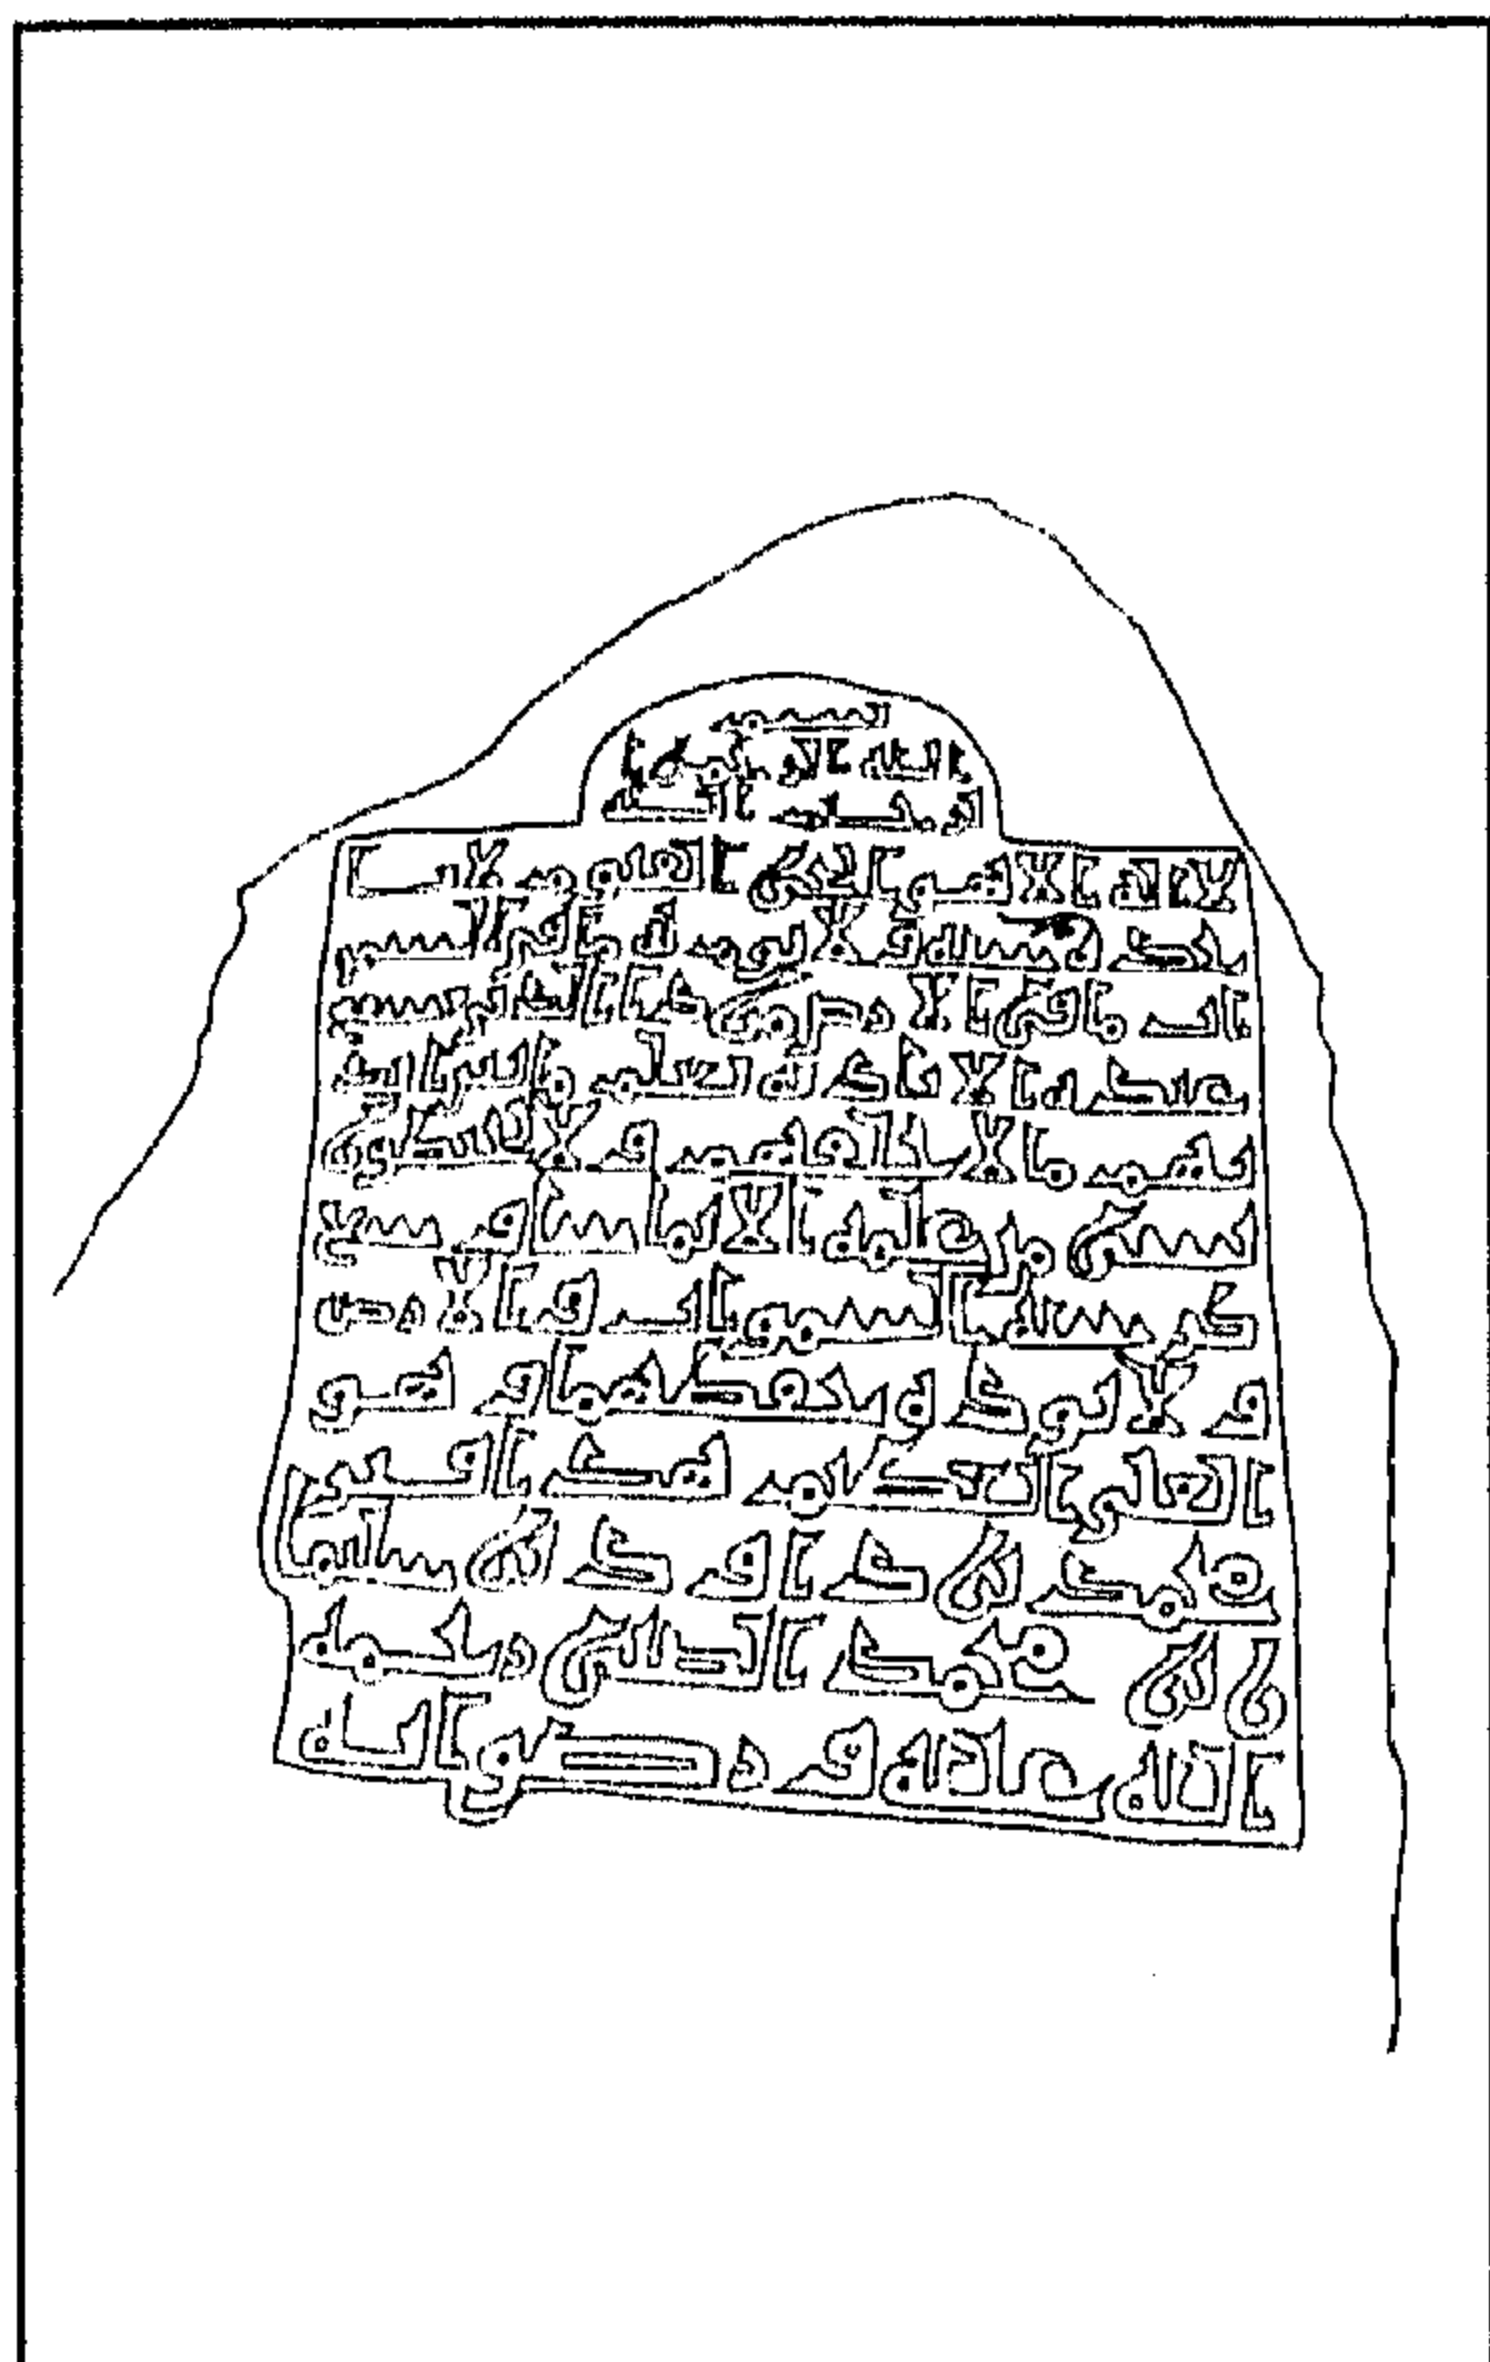 بسم
الله الرحمن ا
لرحيم الله
لا اله الا هو الحي القيوم لا
تاخذه سنة ولا نوم له ما في السمو
ات وما في الارض من ذا الذي يشفع
عنده الا باذنه يعلم ما بين ايد
يهم وما خلفهم ولا يحيطون
بشي من علمه الا بما شا وسع
كرسيه السموات والارض
ولا يوده حفظهما وهو
العلي العظيم هذا قبر
محمد بن داود بن سالم
ابن محمد رحمه
الله عليه ورضوانه